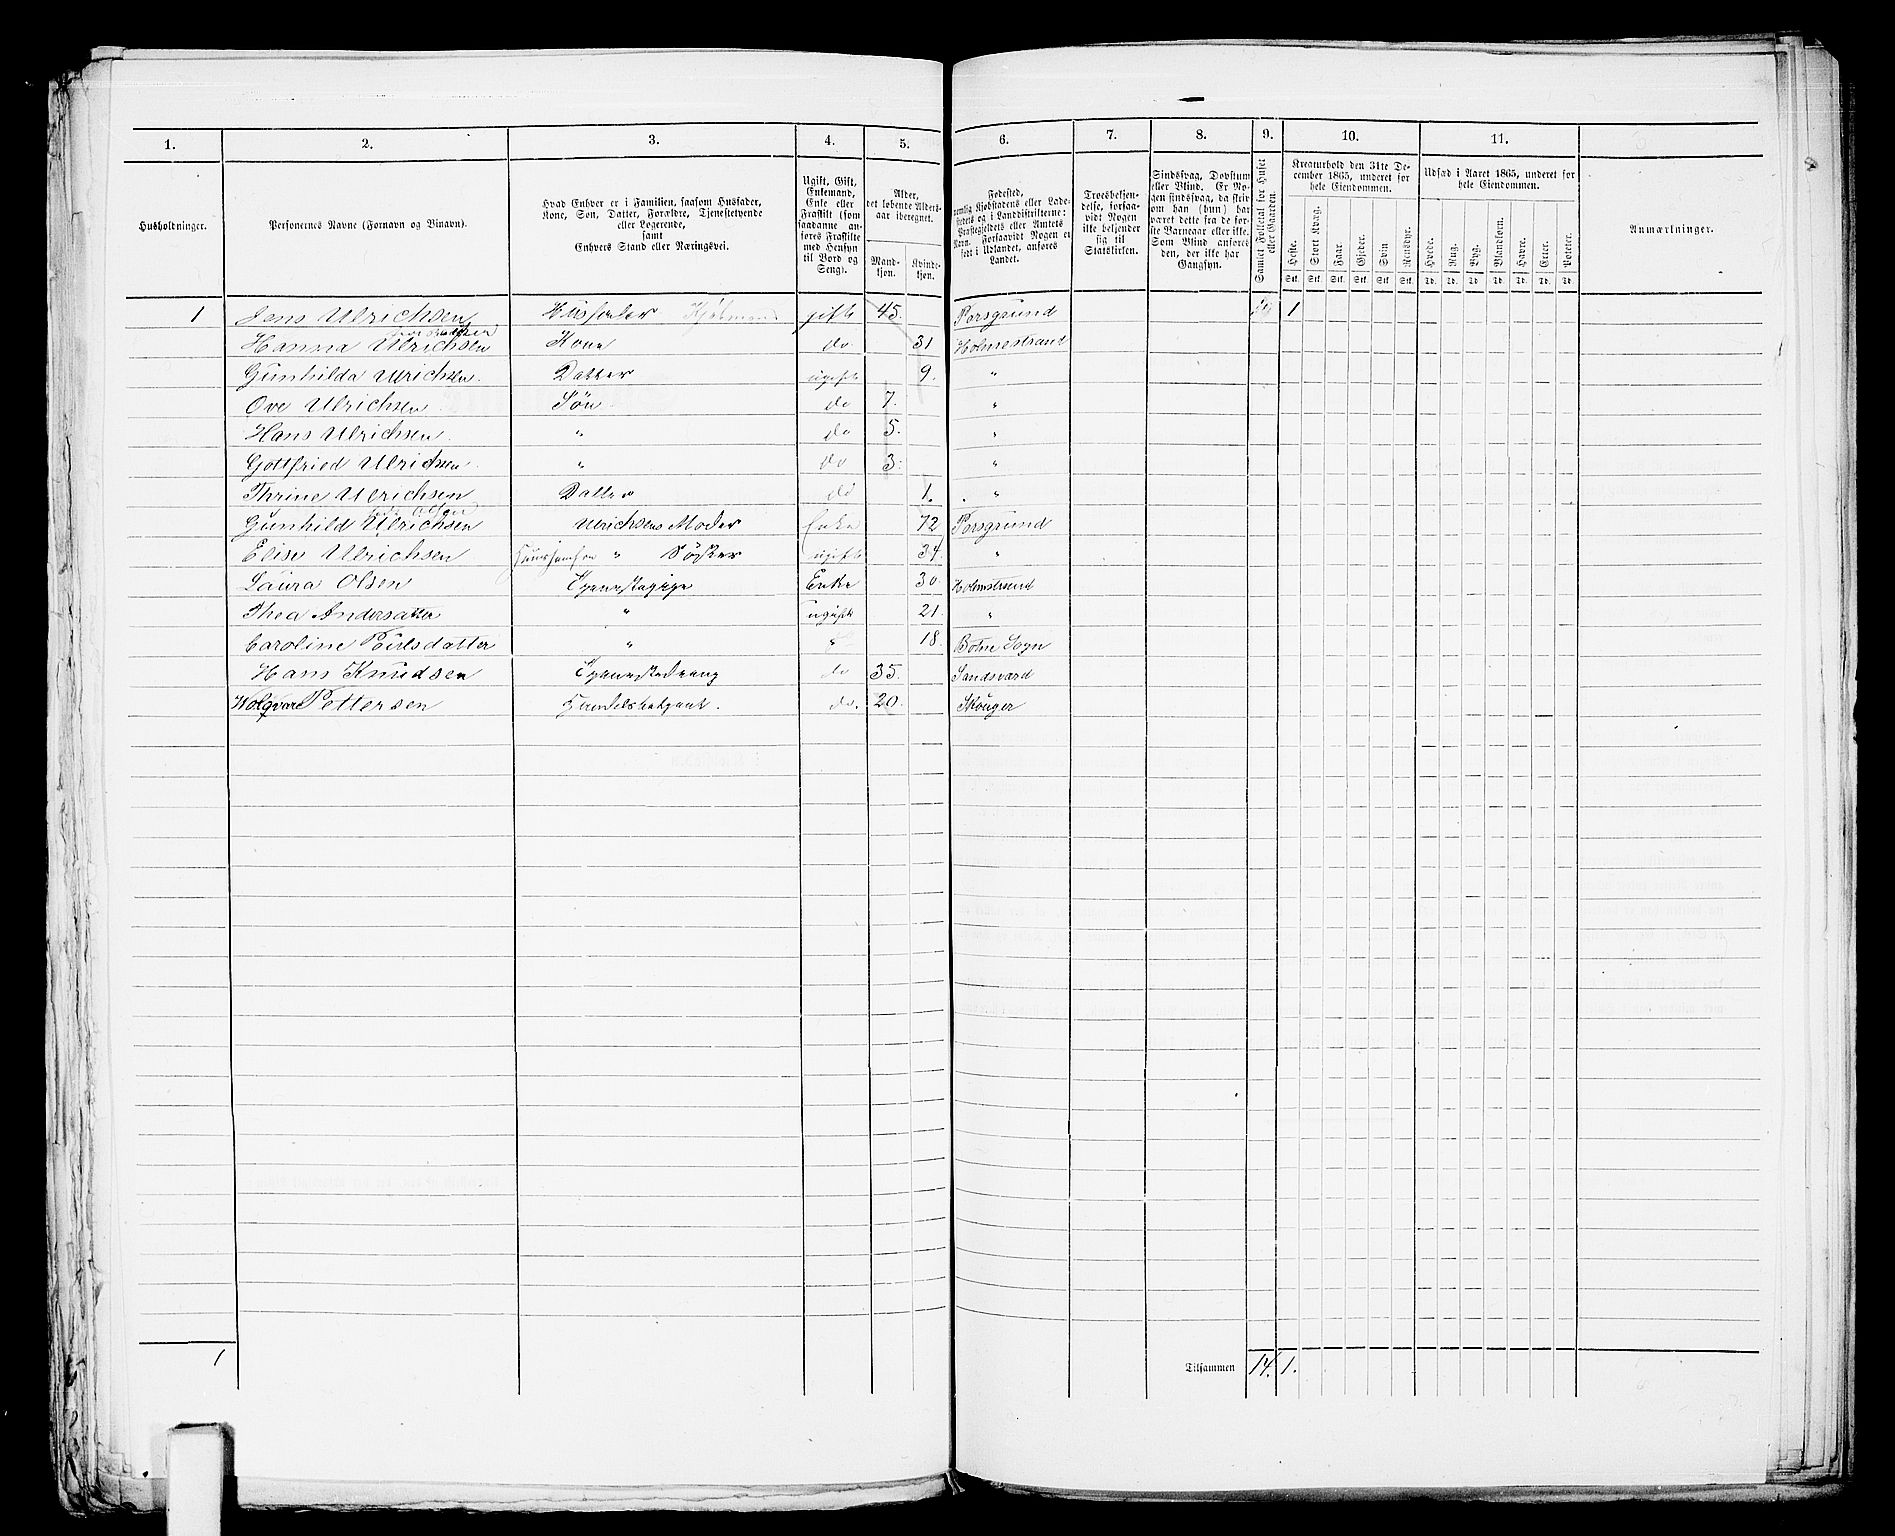 1. 2. 3. 4. 5. 6. 7. 8. 9. 10. 11.
Husholdninger.
Personernes Navne (Fornavn og Tilnavn).
Hvad Enhver er i Familien, saasom Husfader, Kone, Søn, Datter, Forældre, Tjenestetyende eller Logerende, samt Enhvers Stand eller Næringsvei.
Ugift, Gift, Enkemand, Enke eller Fraskilt (som saadanne anføres Fraskilte med Hensyn til Bord og Seng).
Alder, det løbende Aldersaar iberegnet.
Mandkjøn. Kvindekjøn.
Fødested, nemlig Kjøbstadens eller Ladestedets og i Landdistrikterne: Præstegjeldets eller Amtets Navn. Forsaavidt Nogen er født i Udlandet, anføres Landet.
Troesbekjendelse, forsaavidt Nogen ikke bekjender sig til Statskirken.
Sindssvag, Døvstum eller Blind. Er Nogen sindssvag, da skrives om han (hun) har været dette fra de første Barneaar eller ikke. Som Blind anføres den, der ikke har Gangsyn.
Samlet Folketal for Huset eller Gaarden.
Kreaturhold den 31te December 1865, underet for hele Eiendommen.
Heste. Stort Kvæg. Faar. Gjeder. Svin. Rensdyr.
Stk. Stk. Stk. Stk. Stk. Stk.
Udsæd i Aaret 1865, underet for hele Eiendommen.
Hvede. Rug. Byg. Blandkorn. Havre. Erter. Poteter.
Td. Td. Td. Td. Td. Td. Td.
Anmærkninger.
1 Jens Ulrichsen Husfader gift 45. Porsgrund 1
Hanna Ulrichsen Kone do 31 Holmestrand
Gunhilda Ulrichsen. Datter ugift 9. "
Ove Ulrichsen Søn do 7. "
Hans Ulrichsen. " do 5. "
Gottfried Ulrichsen. " do 3. "
Thrine Ulrichsen Datter do 1. "
Gunhild Ulrichsen Ulrichsens Moder Enke 72 Porsgrund
Elise Ulrichsen " Søster ugift 34. "
Laura Olsen Tjenestepige Enke 30. Holmestrand
Thea Andersdatter " ugift 21. "
Caroline Poulsdatter " " 18. Botne Sogn
Hans Knudsen Tjenestedreng do 35. Sandsværd
Pettersen Handelsbetjent. do. 20. Skouger
1
Tilsammen 14. 1.